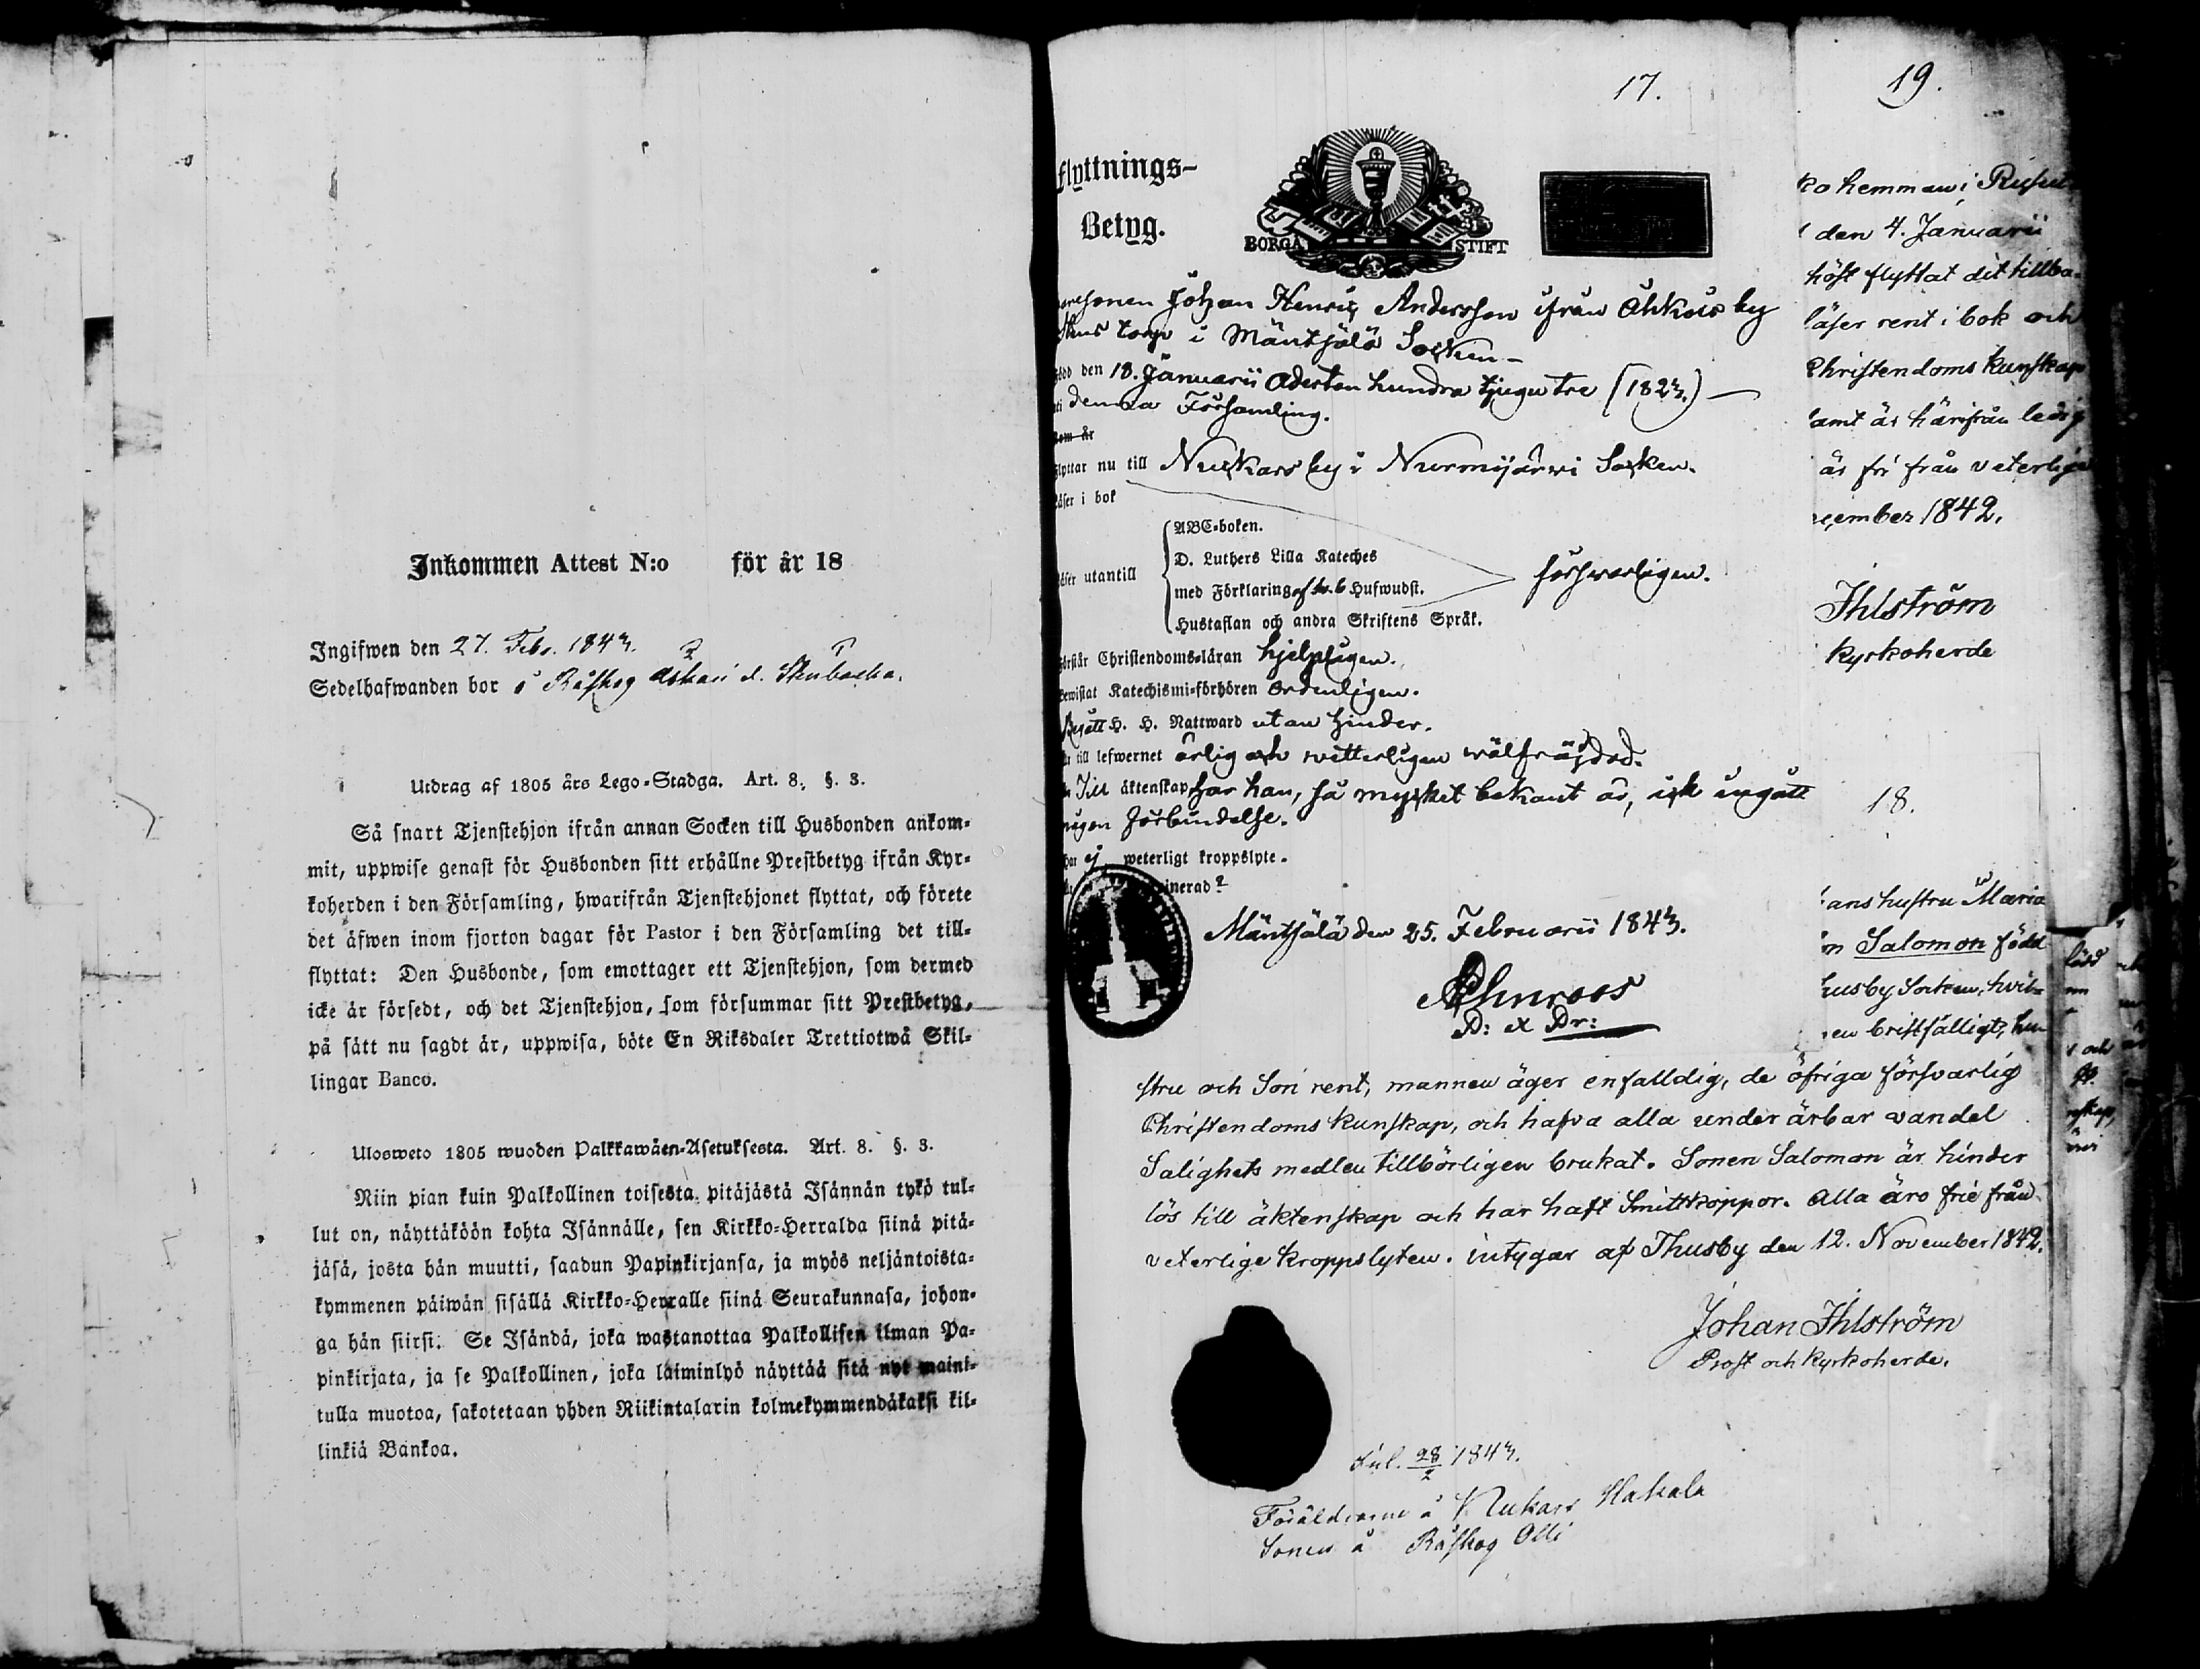 Inkommen Attest N:o för år 18
Ingifwen den 27. Febr. 1843.
Sedelhafwanden bor å Råskog
Utdrag af 1805 års Lego-Stadga. Art. 8. §. 3.
Så snart Tjenstehjon ifrån annan Socken till Husbonden ankom-
mit, uppwise genast för Husbonden sitt erhållne Prestbetyg ifrån Kyr-
koherden i den Församling, hwarifrån Tjenstehjonet flyttat, och förete
det äfwen inom fjorton dagar för Pastor i den Församling det till-
flyttat: Den Husbonde, som emottager ett Tjenstehjon, som dermed
icke är försedt, och det Tjenstehjon, som försummar sitt Prestbetyg,
på sätt nu sagdt är, uppwisa, böte En Riksdaler Trettiotwå Skil-
lingar Banco.
Ulosweto 1805 wuoden Palkkawäen-Asetuksesta. Art. 8. §. 3.
Niin pian kuin Palkollinen toisesta pitäjästä Isännän tykö tul-
lut on, näyttäköön kohta Isännälle, sen Kirkko-Herralda siinä pitä-
jäsä, josta hän muutti, saadun Papinkirjansa, ja myös neljäntoista-
kymmenen päiwän sisällä Kirkko-Herralle siinä Seurakunnasa, johon-
ga hän siirsi. Se Isändä, joka wastanottaa Palkollisen ilman Pa-
pinkirjata, ja se Palkollinen, joka laiminlyö näyttää sitä nyt maini-
tulla muotoa, sakotetaan yhden Riikintalarin kolmekymmendäkaksi kil-
linkiä Bankoa.
17.
Flyttnings-
Betyg.
BORGÅ STIFT
sonen Johan Henric Andersson ifrån Ohkois by
torp i Mäntsälä Socken
född den 18. Januarii Adertonhundra tjugu tre (1823.)
uti denna Församling.
som är
Flyttar nu till Nuckars by i Nurmijärwi Socken.
Läser i bok
Läser utantill
ABC-boken.
D. Luthers Lilla Kateches
med Förklaring af Hufwudst.
Hustaflan och andra Skriftens Språk.
försvarligen.
Förstår Christendoms-läran hjelpligen.
Bewistat Katechismi-förhören ordenligen.
Begått H. H. Nattward utan hinder.
Är till lefwernet ärlig och witterligen wälfräjdad.
Till äktenskap har han, så mycket bekant är, ick ingått
någon förbindelse.
har ej weterligt kroppslyte.
Mäntsälä den 25. Februarii 1843.
19.
hemman i
den 4. Januarii
höst flyttat dit tillba-
läser rent i bok och
Christendoms kunskap
samt är härifrån ledig
är fri från veterliga
1842.
Ihlström
Kyrkoherde
18.
hans hustru Maria
Salomon född
Thusby Socken, hvil-
bristfälligt, hu-
stru och Son rent, mannen äger enfalldig, de öfriga försvarlig
Christendoms kunskap, och hafva alla under ärbar vandel
Salighets medlen tillbörligen brukat. Sonen Salomon är hinder
lös till äktenskap och har haft Smittkoppor. Alla äro frie från
veterlige kroppslyten. intygar af Thusby den 12. November 1842.
Johan Ihlström
Prost och Kyrkoherde.
28/2 1843.
Föräldrarne å Nukars Hakala
Sonen å Råskog Olli